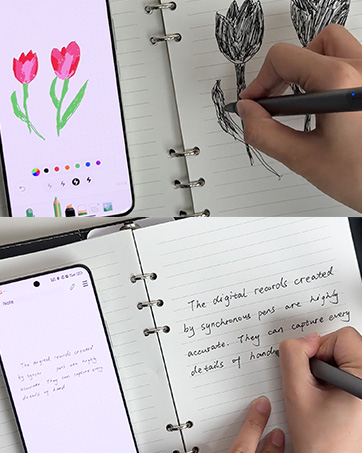 Note
The digital records created
by synchronous pens are highly
accurate. They can capture every
details of hand
The digital records created
by synchronous pens are highly
accurate. They can capture every
details of hand